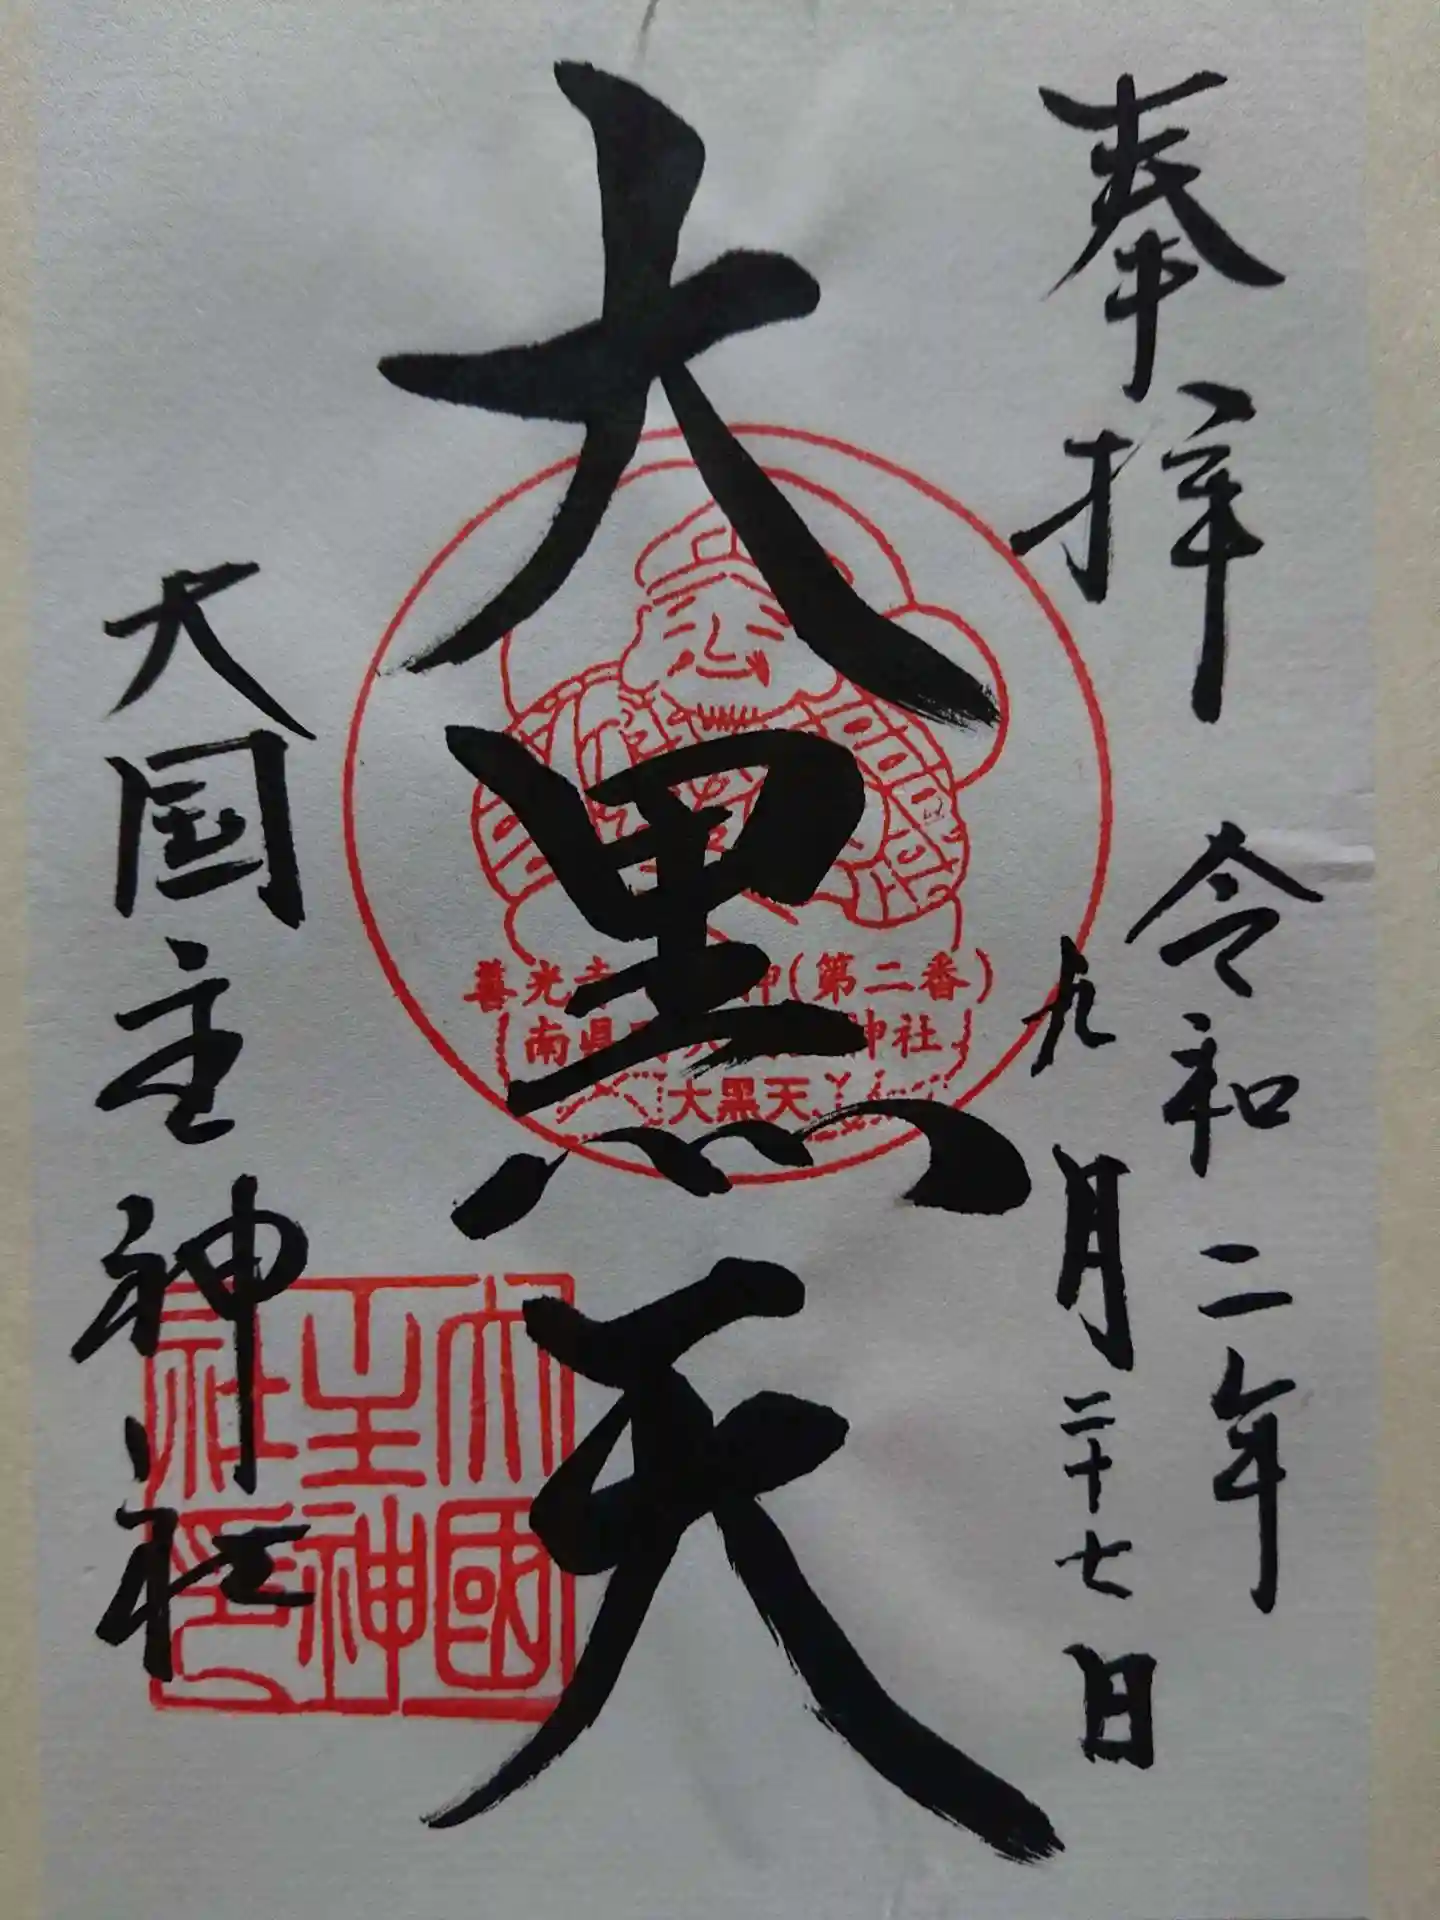 奉拝
令和二年
九月二十七日
大黒天
善光寺 神(第二番)
南県 神社
大黒天
大国主神社
大國
主神
社印